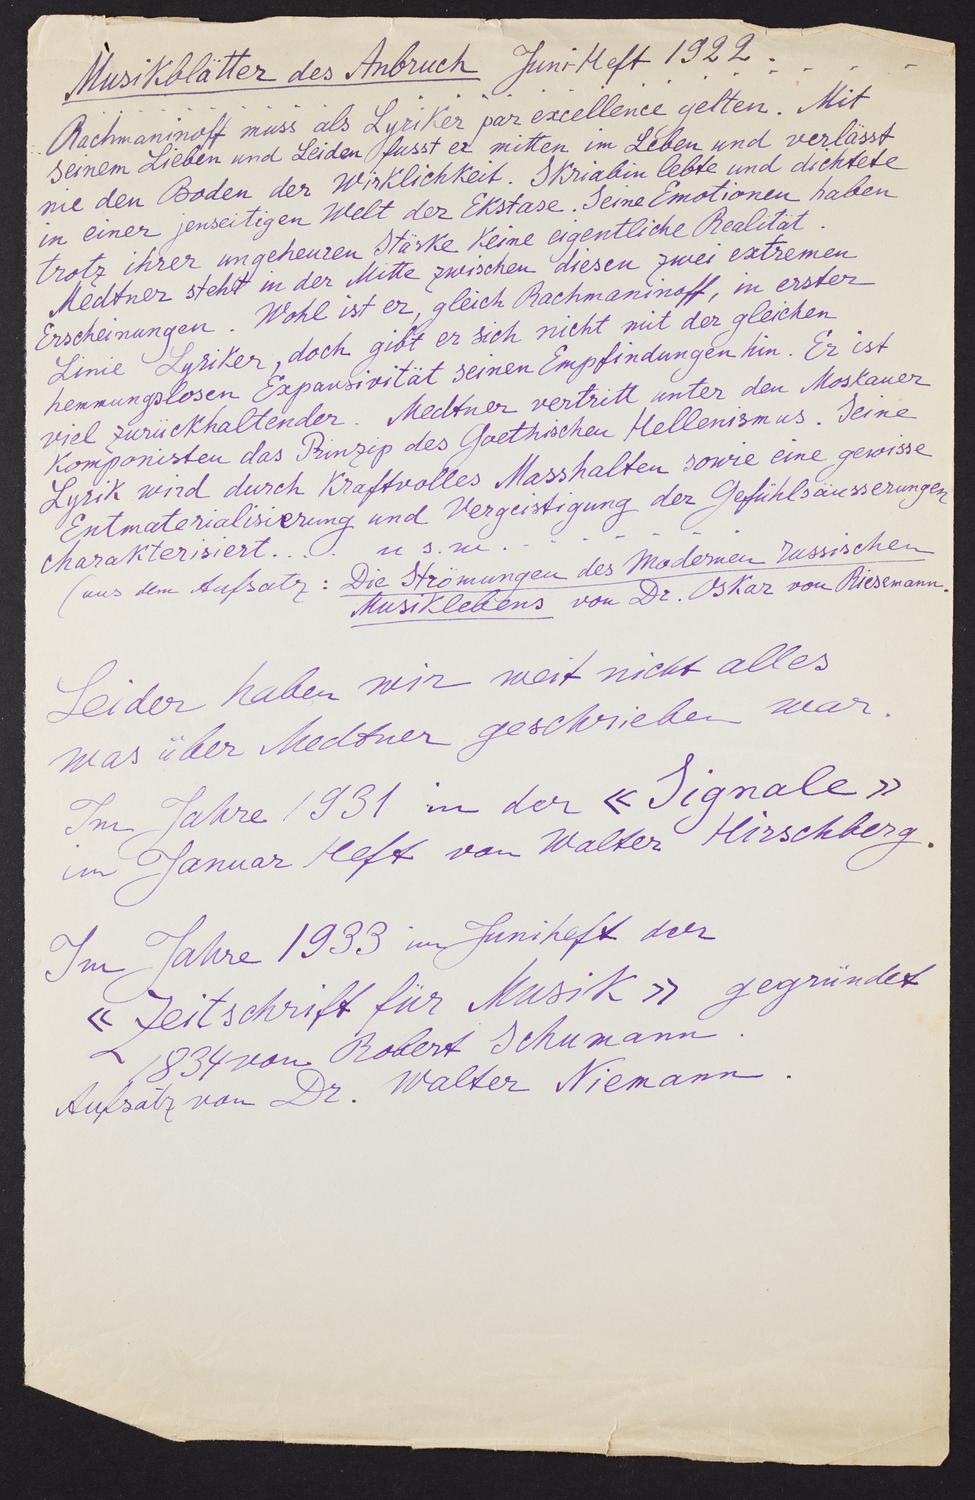 Musikblätter des Anbruch Juni-Heft 1922. . . . .
Rachmaninoff muss als Lyriker par excellence gelten. Mit
seinem Lieben und Leiden fusst er mitten im Leben und verlässt
nie den Boden der Wirklichkeit. Skriabin lebte und dichtete
in einer jenseitigen Welt der Ekstase. Seine Emotionen haben
trotz ihrer ungeheuren Stärke keine eigentliche Realität.
Medtner steht in der Mitte zwischen diesen zwei extremen
Erscheinungen. Wohl ist er, gleich Rachmaninoff, in erster
Linie Lyriker, doch gibt er sich nicht mit der gleichen
hemmungslosen Expansivität seinen Empfindungen hin. Er ist
viel zurückhaltender. Medtner vertritt unter den Moskauer
Komponisten das Prinzip des Goethischen Hellenismus. Seine
Lyrik wird durch kraftvolles Masshalten sowie eine gewisse
Entmaterialisierung und Vergeistigung der Gefühlsäusserungen
charakterisiert. . . . u s. w. . . . . .
(aus dem Aufsatz: Die Strömungen des Modernen russischen
Musiklebens von Dr. Oskar von Riesemann.
Leider haben wir weit nicht alles
was über Medtner geschrieben war.
Im Jahre 1931 in der « Signale »
im Januar Heft von Walter Hirschberg.
Im Jahre 1933 im Juniheft der
« Zeitschrift für Musik » gegründet
1834 von Robert Schumann.
Aufsatz von Dr. Walter Niemann.